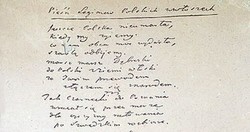 Pieśń Legionów Polskich we Włoszech
Jeszcze Polska nie umarła,
kiedy my żyjemy.
co nam obca moc wydarła,
szablą odbijemy.
Marsz marsz Dąbrowski
do Polski z ziemi włoski
za Twoim przewodem
złączem się z narodem.
Jak Czarnecki do Poznania
wracał się przez morze
dla ojczyzny ratowania
po Szwedzkim